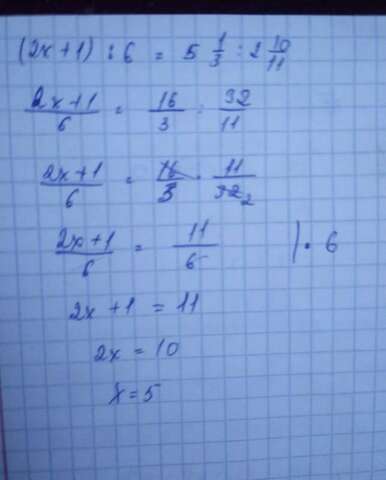 (2x+1) : 6 = 5 1/3 : 2 10/11
2x+1/6 = 16/3 : 32/11
2x+1/6 = 16/3 · 11/32 2
2x+1/6 = 11/6 | · 6
2x + 1 = 11
2x = 10
x = 5